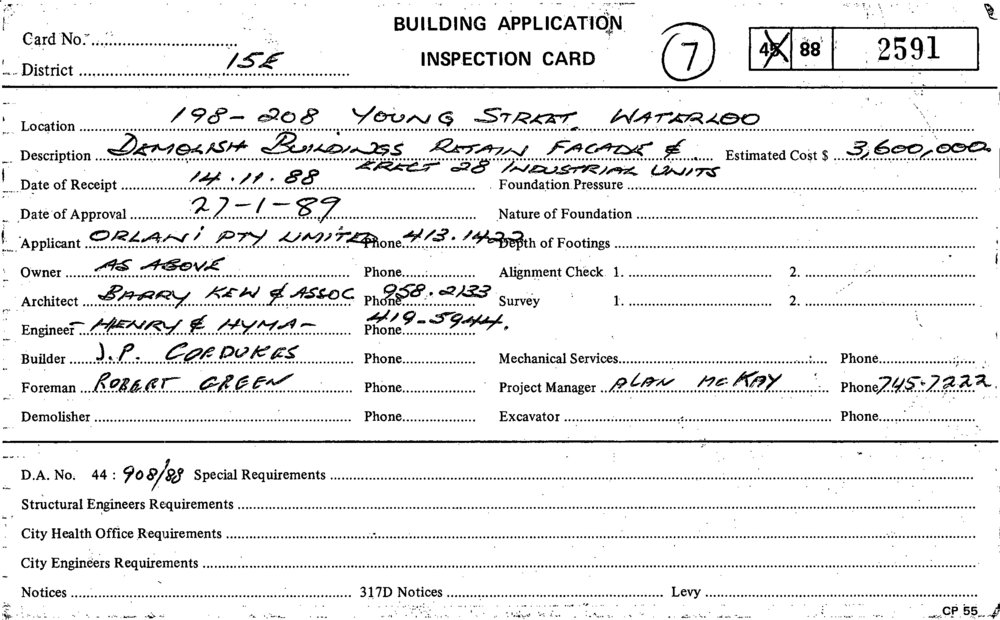 BUILDING APPLICATION
Card No. 
INSPECTION CARD 7 45 88 2591
District 15E
Location 198-208 YOUNG STREET, WATERLOO
Description DEMOLISH BUILDINGS RETAIN FACADE & Estimated Cost $ 3,600,000
ERECT 28 INDUSTRIAL UNITS
Date of Receipt 14.11.88 Foundation Pressure
Date of Approval 27-1-89 Nature of Foundation
Applicant ORLANI PTY LIMITED Phone 413.1422 Depth of Footings
Owner AS ABOVE Phone Alignment Check 1. 2.
Architect BARRY KEW & ASSOC Phone 958.2133 Survey 1. 2.
Engineer - HENRY & HYMA - Phone 419-5944.
Builder J.P. CORDUKES Phone Mechanical Services Phone
Foreman ROBERT GREEN Phone Project Manager ALAN McKAY Phone 745-7222
Demolisher Phone Excavator Phone
D.A. No. 44 : 908/88 Special Requirements
Structural Engineers Requirements
City Health Office Requirements
City Engineers Requirements
Notices 317D Notices Levy
CP 55